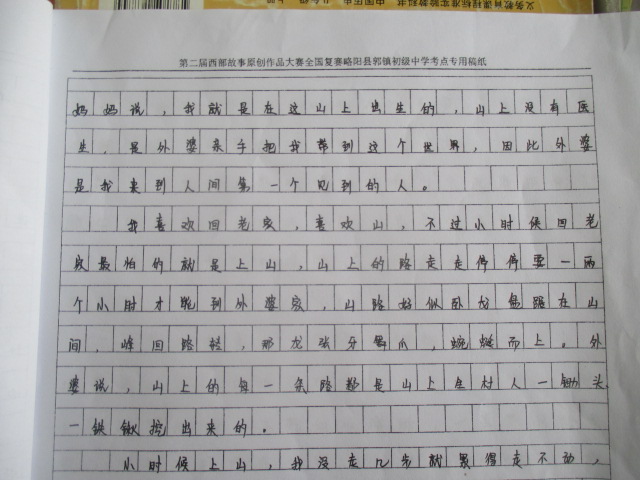 义务教育课程标准实验教科书 中国历史 八年级 上册
第二届西部故事原创作品大赛全国复赛略阳县郭镇初级中学考点专用稿纸
妈妈说，我就是在这山上出生的，山上没有医
生，是外婆亲手把我带到这个世界，因此外婆
是我来到人间第一个见到的人。
我喜欢回老家，喜欢山，不过小时候回老
家最怕的就是上山，山上的路走走停停要一两
个小时才能到外婆家，山路好似卧龙盘踞在山
间，峰回路转，那龙张牙舞爪，蜿蜒而上。外
婆说，山上的每一条路都是山上全村人一锄头
一铁锹挖出来的。
小时候上山，我没走几步就累得走不动，